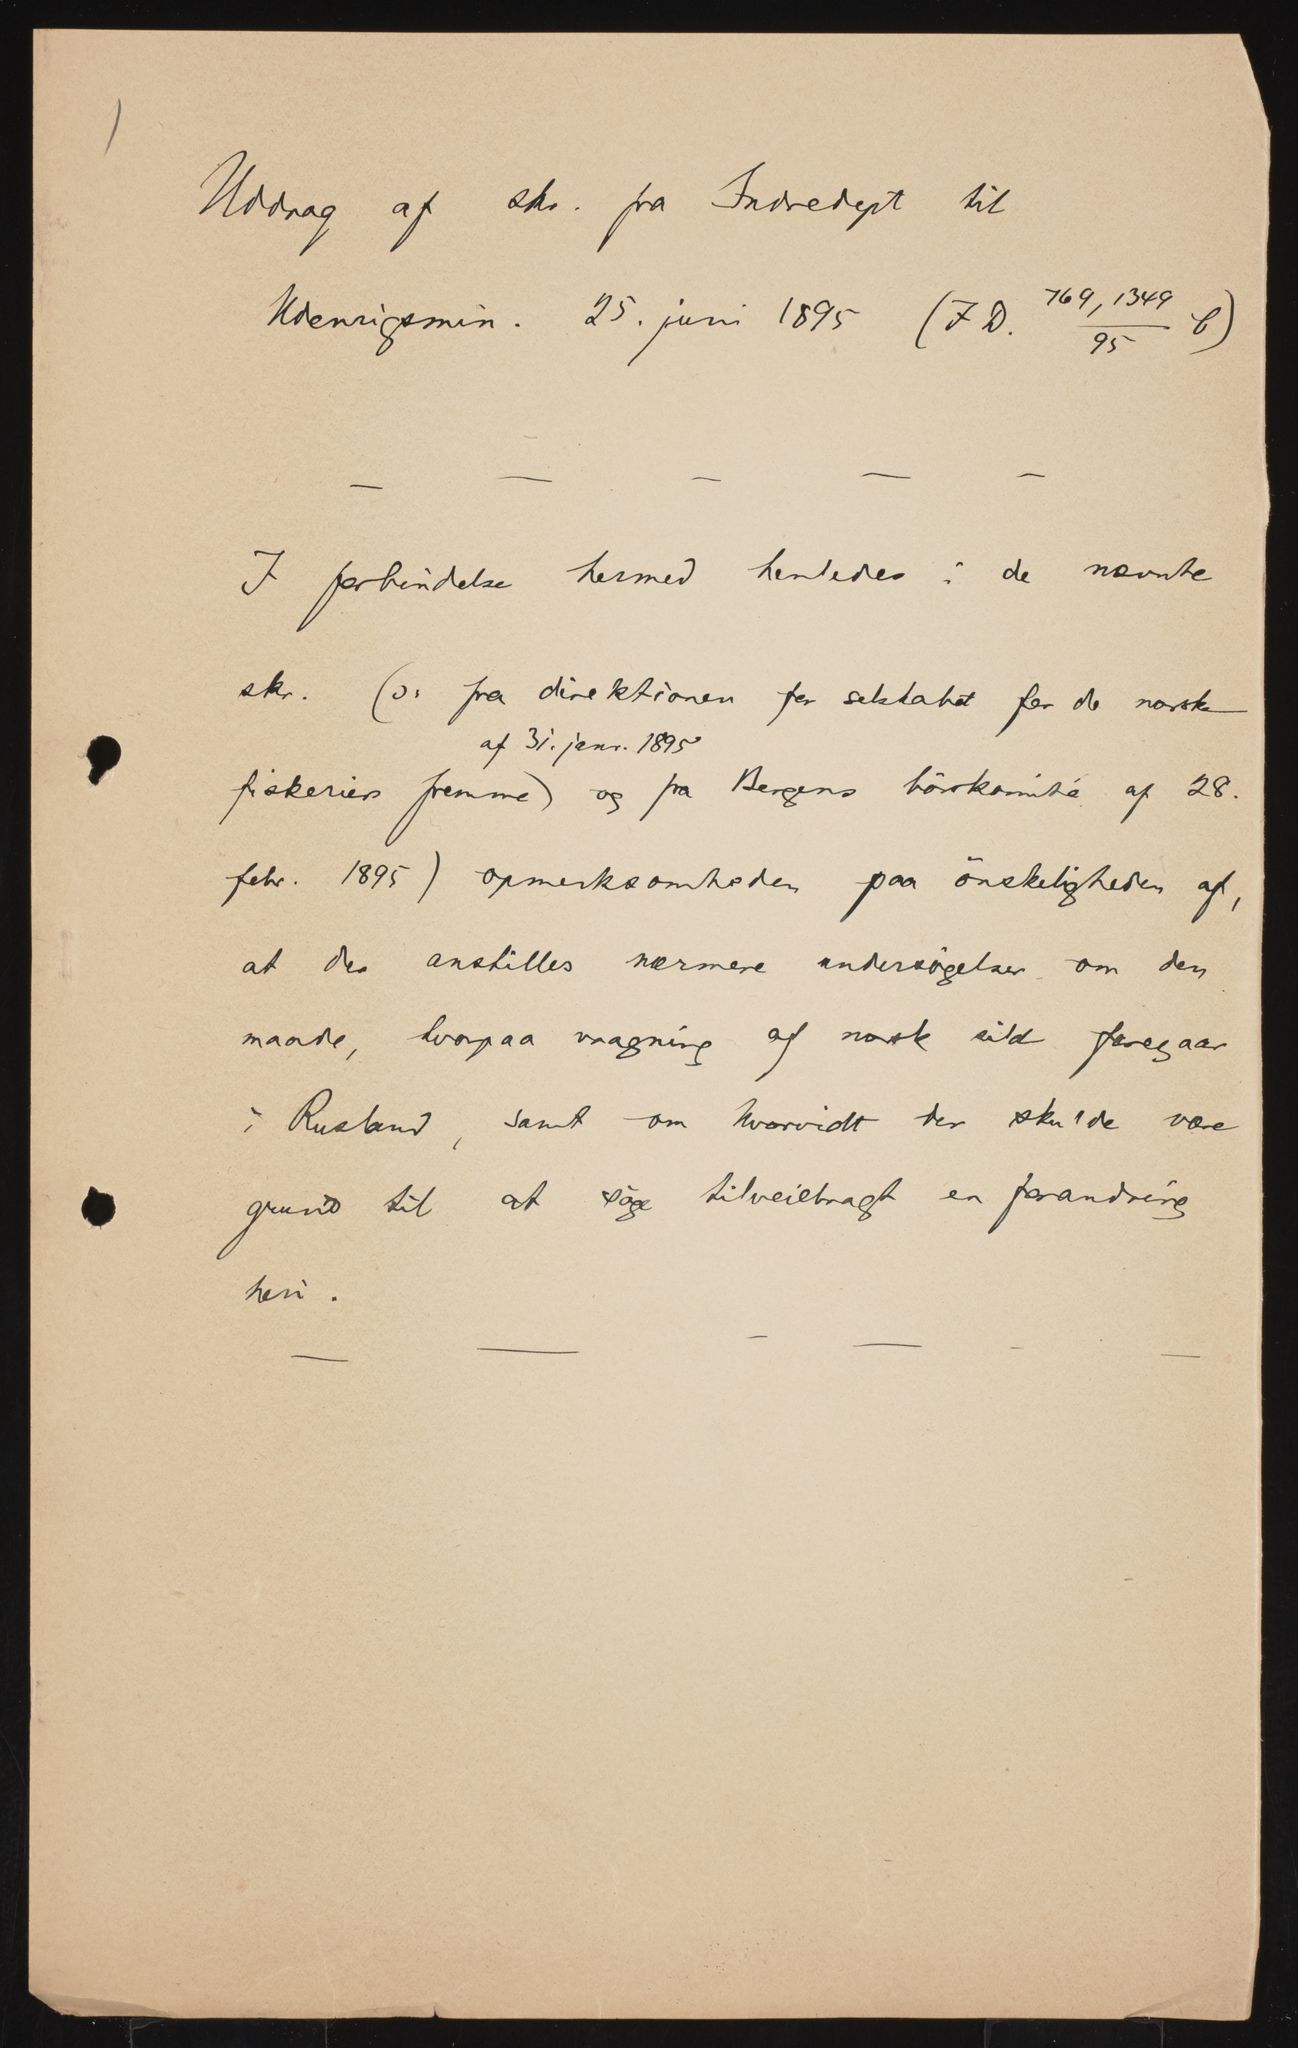 Uddrag af skr. fra Indredept til
Udenrigsmin. 25. juni 1895 (I D. 769, 1349 / 95 C)
I forbindelse hermed henledes i de nævnte
skr. (ɔ: fra direktionen for selskabet for de norske
af 31. janr. 1895
fiskeriers fremme) og fra Bergens börskomité af 28.
febr. 1895) opmerksomheden paa önskeligheden af,
at der anstilles nærmere undersögelser om den
maade, hvorpaa vragning af norsk sild foregaar
i Rusland, samt om hvorvidt der skulde være
grund til at söge tilveiebragt en forandring
heri.